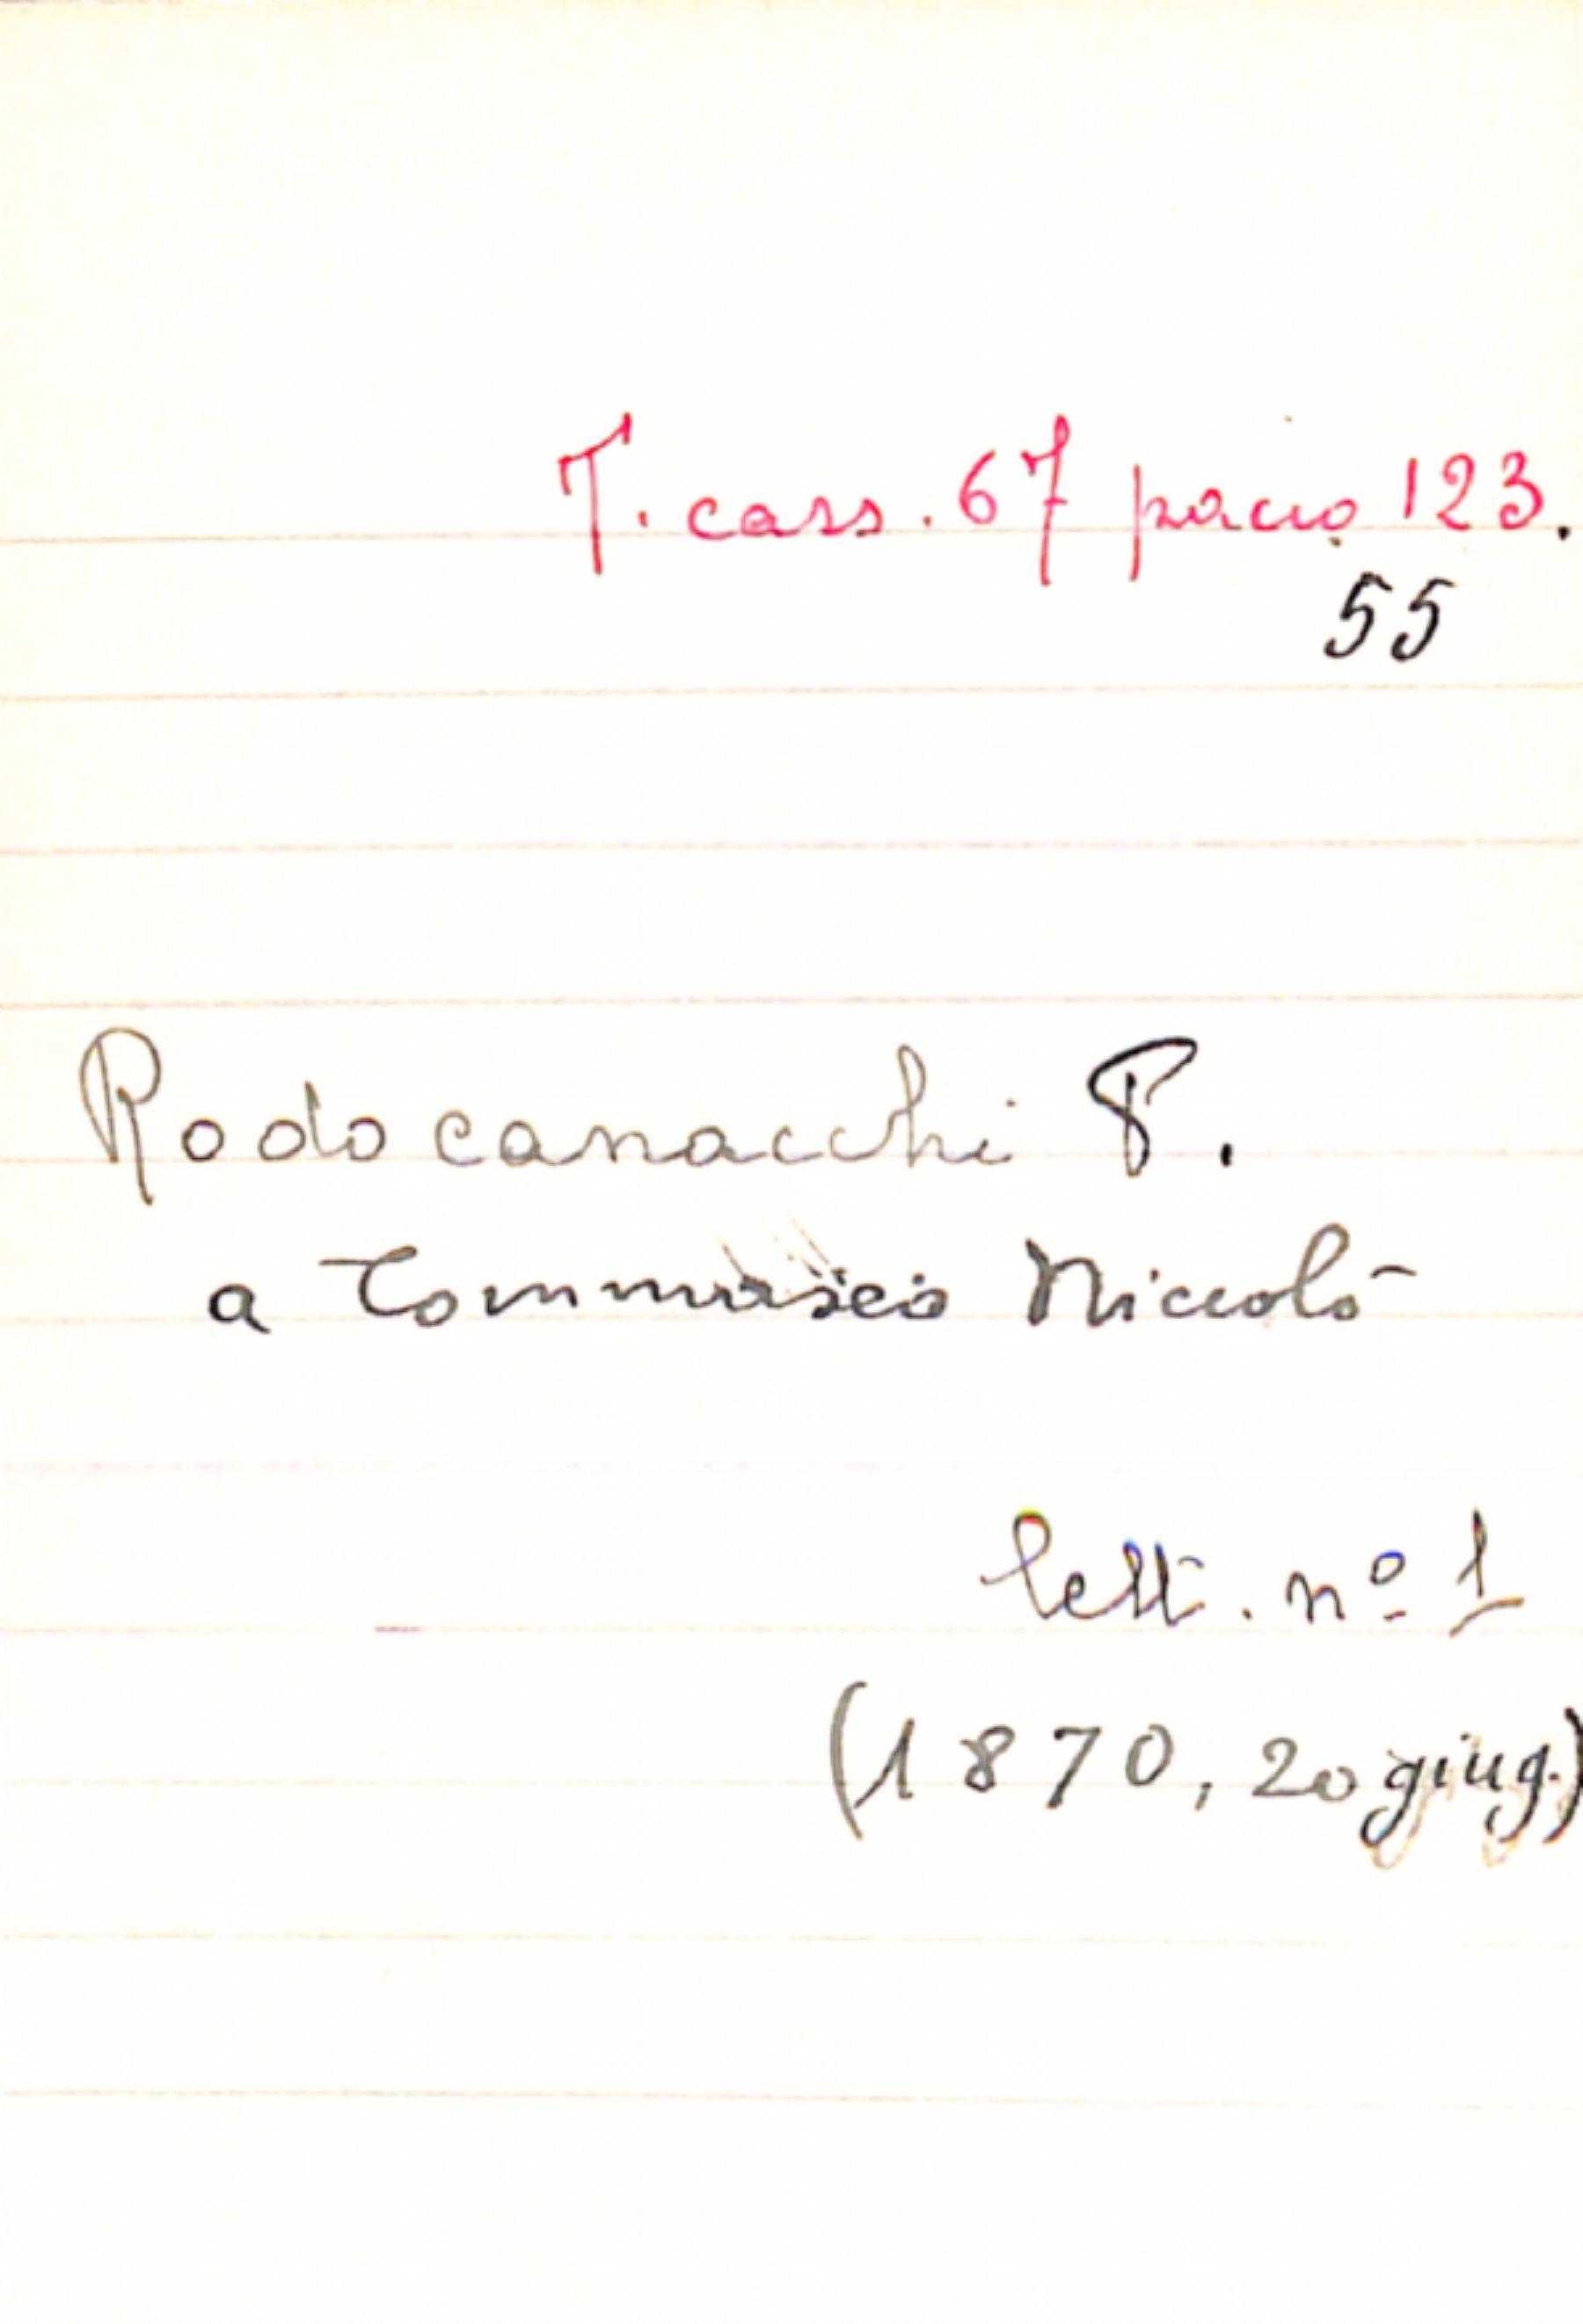 T. cass. 67 pacco 123.
55
Rodocanacchi P.
a Tommaseo Niccolò
lett. nº 1
(1870, 20 giug.)